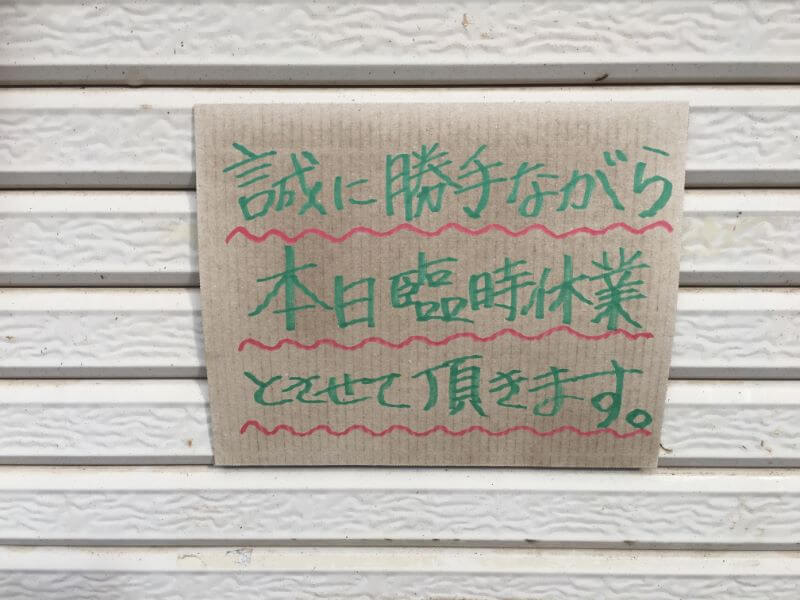 誠に勝手ながら
本日臨時休業
とさせて頂きます。